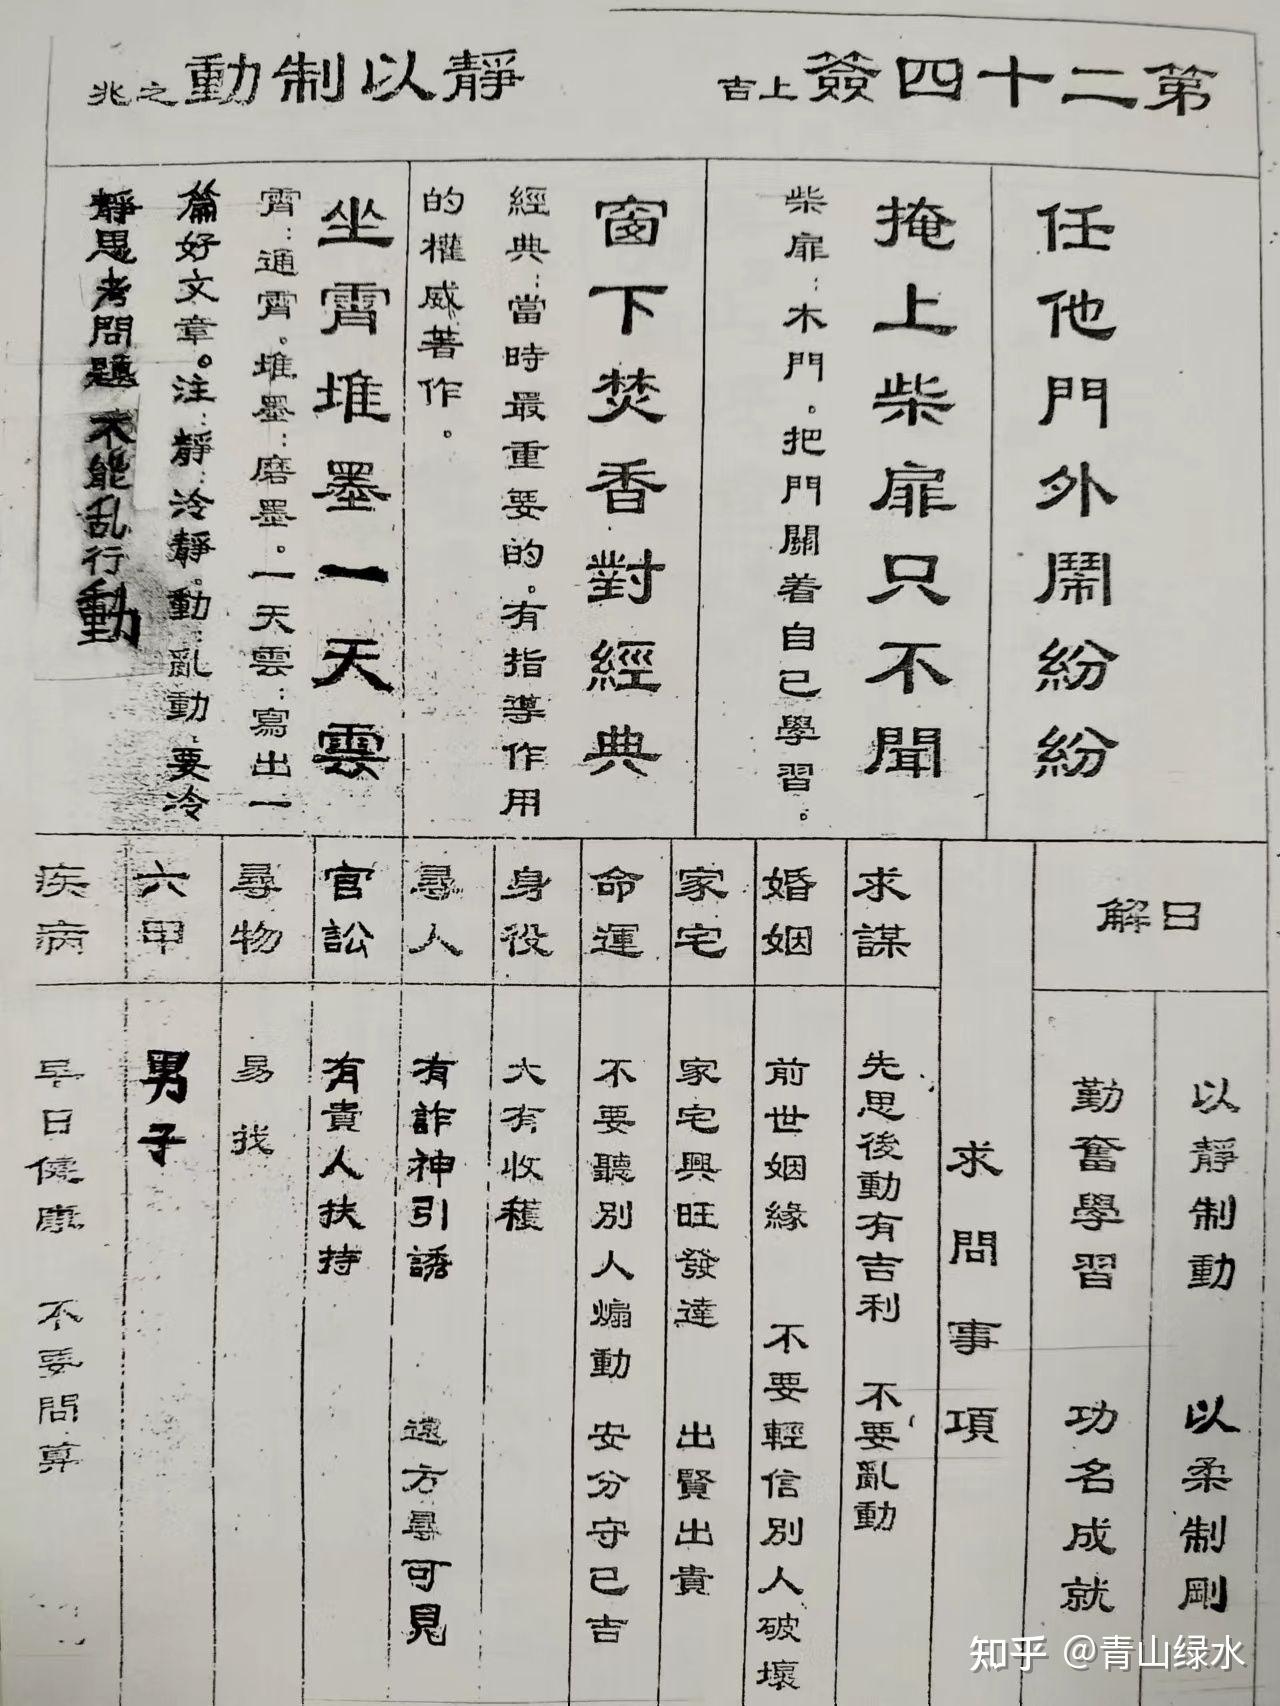 第二十四簽上吉
靜以制動之兆
任他門外鬧紛紛
掩上柴扉只不聞
柴扉：木門。把門關着自己學習。
窗下焚香對經典
經典：當時最重要的。有指導作用
的權威著作。
坐霄堆墨一天雲
霄：通霄。堆墨：磨墨。一天雲：寫出一
篇好文章。注：靜：冷靜。動：亂動。要冷
靜思考問題 不能乱行動
解曰
以靜制動 以柔制剛
勤奮學習 功名成就
求問事項
求謀
先思後動有吉利 不要亂動
婚姻
前世姻緣 不要輕信別人破壞
家宅
家宅興旺發達 出賢出貴
命運
不要聽別人煽動 安分守己吉
身役
大有收穫
尋人
有詐神引誘 遠方尋可見
官訟
有貴人扶持
尋物
易找
六甲
男子
疾病
早日健康 不要問算
知乎 @青山绿水